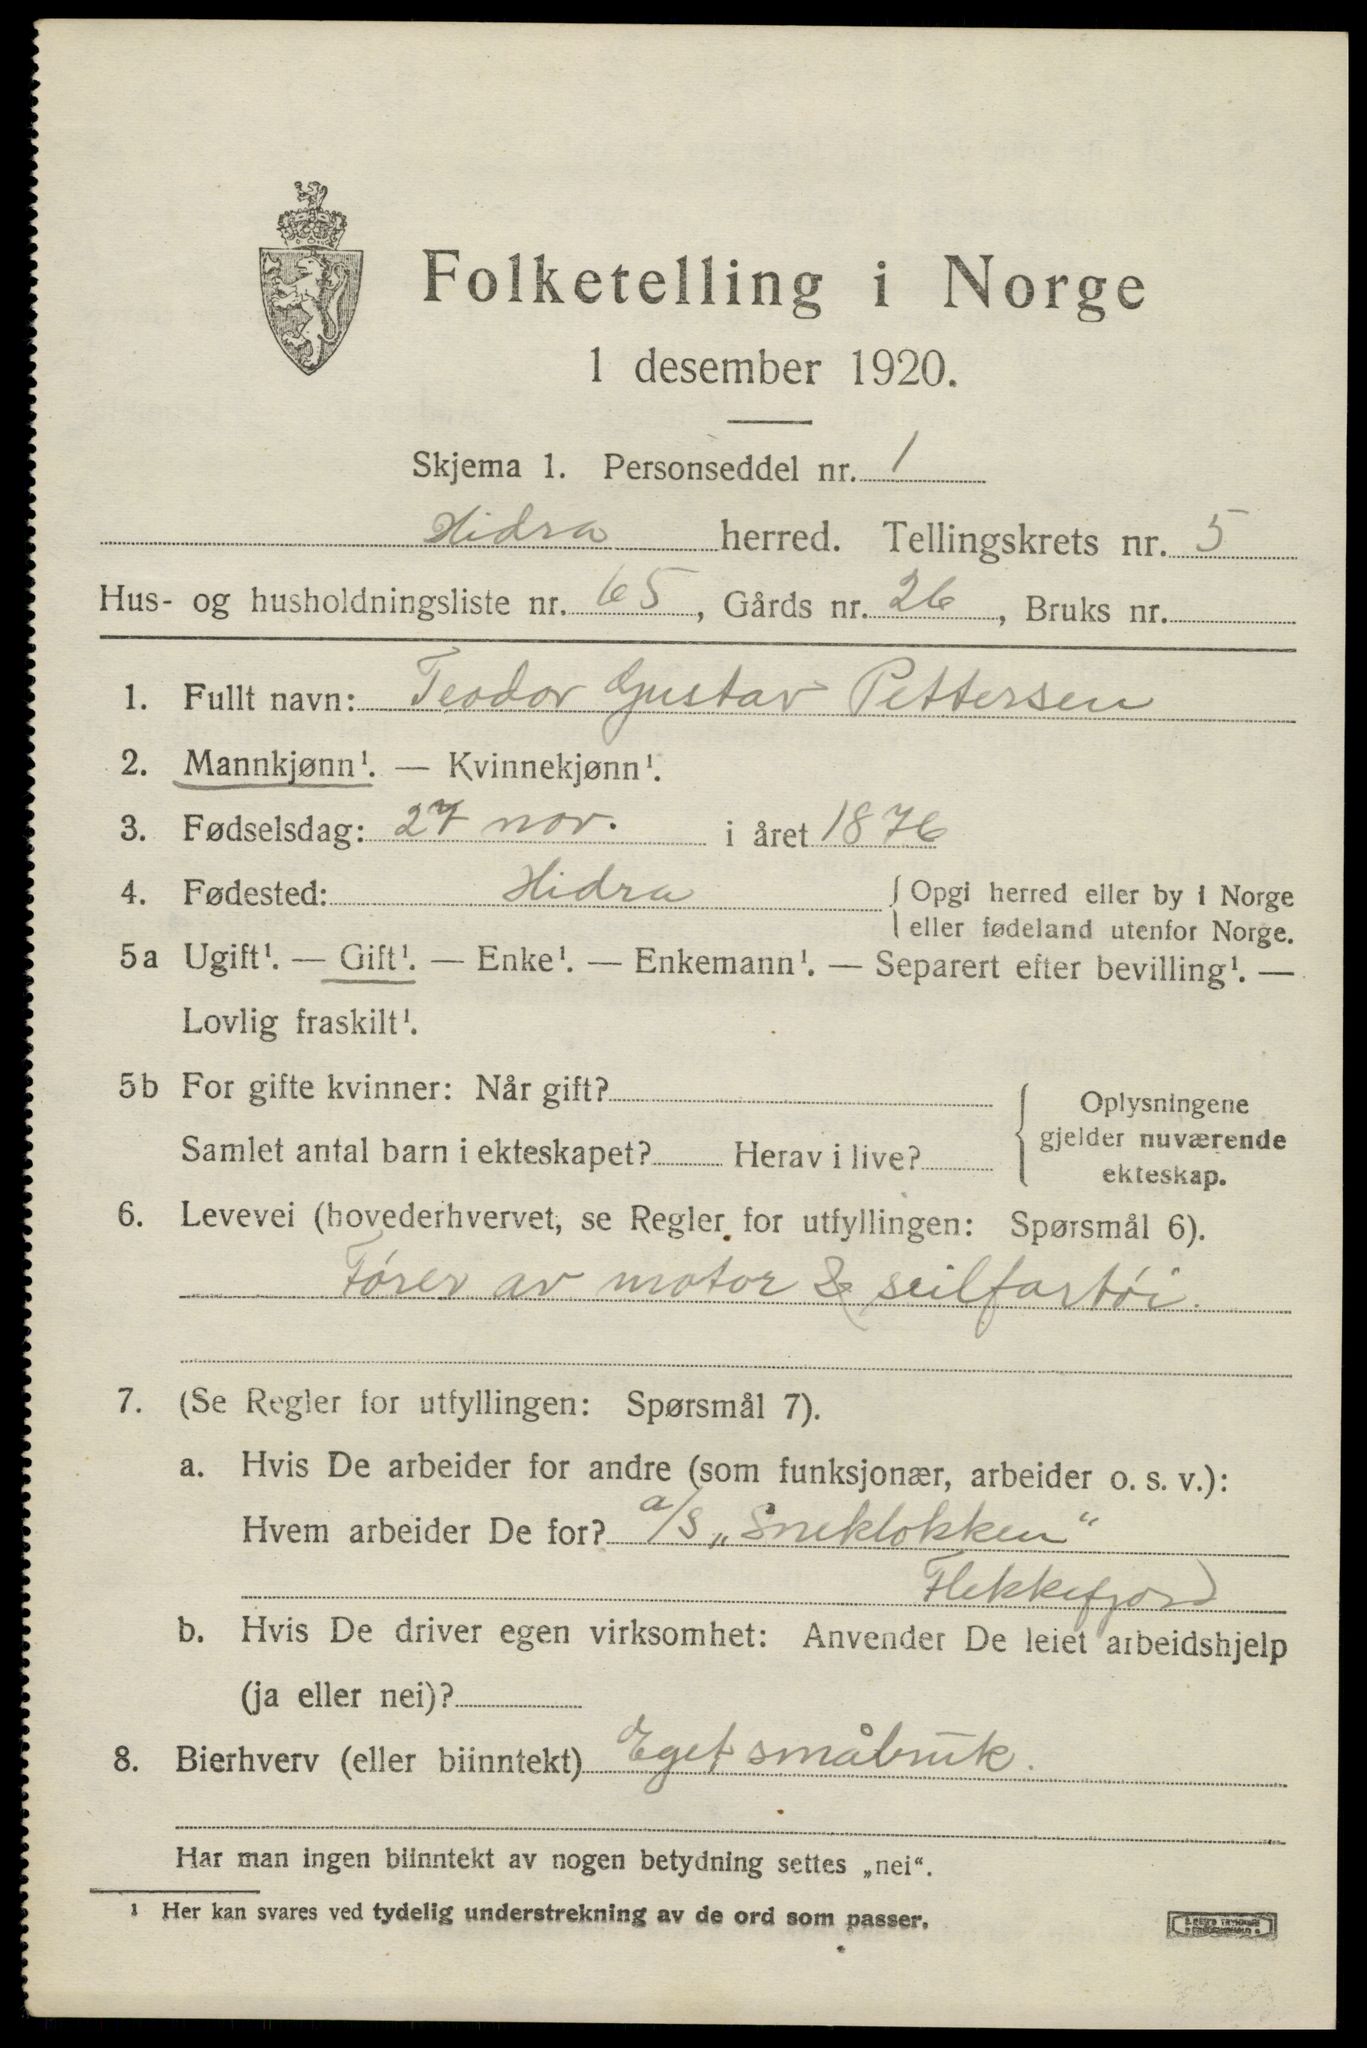 Folketelling i Norge
1 desember 1920.
Skjema 1. Personseddel nr. 1
Hidra herred. Tellingskrets nr. 5
Hus- og husholdningsliste nr. 65, Gårds nr. 26, Bruks nr.
1. Fullt navn: Teodor Gustav Pettersen
2. Mannkjønn¹. — Kvinnekjønn¹.
3. Fødselsdag: 27 nov. i året 1876
4. Fødested: Hidra { Opgi herred eller by i Norge
eller fødeland utenfor Norge.
5a Ugift¹. — Gift¹. — Enke¹. — Enkemann¹. — Separert efter bevilling¹. —
Lovlig fraskilt¹.
5b For gifte kvinner: Når gift?
Samlet antal barn i ekteskapet? Herav i live?
{ Oplysningene
gjelder nuværende
ekteskap.
6. Levevei (hovederhvervet, se Regler for utfyllingen: Spørsmål 6).
Fører av motor & seilfartøi.
7. (Se Regler for utfyllingen: Spørsmål 7).
a. Hvis De arbeider for andre (som funksjonær, arbeider o. s. v.):
Hvem arbeider De for? a/s „Sneklokken“
Flekkefjord
b. Hvis De driver egen virksomhet: Anvender De leiet arbeidshjelp
(ja eller nei)?
8. Bierhverv (eller biinntekt) Eget småbruk.
Har man ingen biinntekt av nogen betydning settes „nei“.
¹ Her kan svares ved tydelig understrekning av de ord som passer.